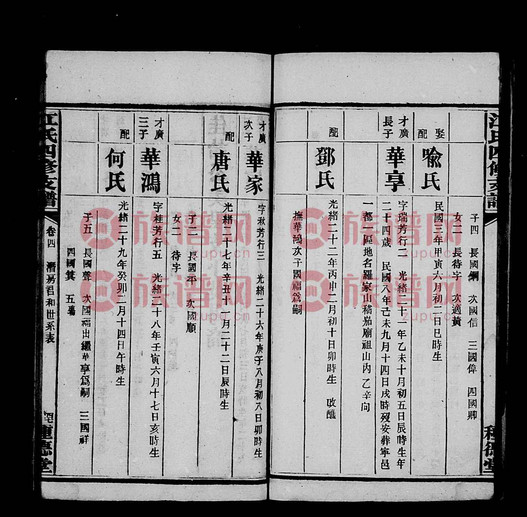 江氏四修支譜
娶
喻氏
民國三年甲寅六月初二日巳時生
子四 長國 次國信 三國偉 四國卿
女二 長待字 次適黃
才廣
長子
華享
字瑞芳行二 光緒二十一年乙未十月初五日辰時生年
二十四歲 民國八年己未九月十四日戌時歿安葬寧邑
一都三區地名羅家山楊茄廟祖山內乙辛向
配
鄧氏
光緒二十二年丙申二月初十日卯時生 改醮
撫華鴻次子國福為嗣
種德堂
才廣
次子
華家
字淑芳行三 光緒二十六年庚子八月初八日卯時生
配
唐氏
光緒二十七年辛丑十一月二十二日辰時生
子二 長國平 次國順
女二 待字
才廣
三子
華鴻
字桂芳行五 光緒二十八年壬寅六月十七日亥時生
配
何氏
光緒二十九年癸卯二月十四日午時生
子五 長國聲 次國福出繼華享為嗣 三國祥
四國 五
江氏四修支譜
卷四
世系表
種德堂
族譜网
zupu.cn